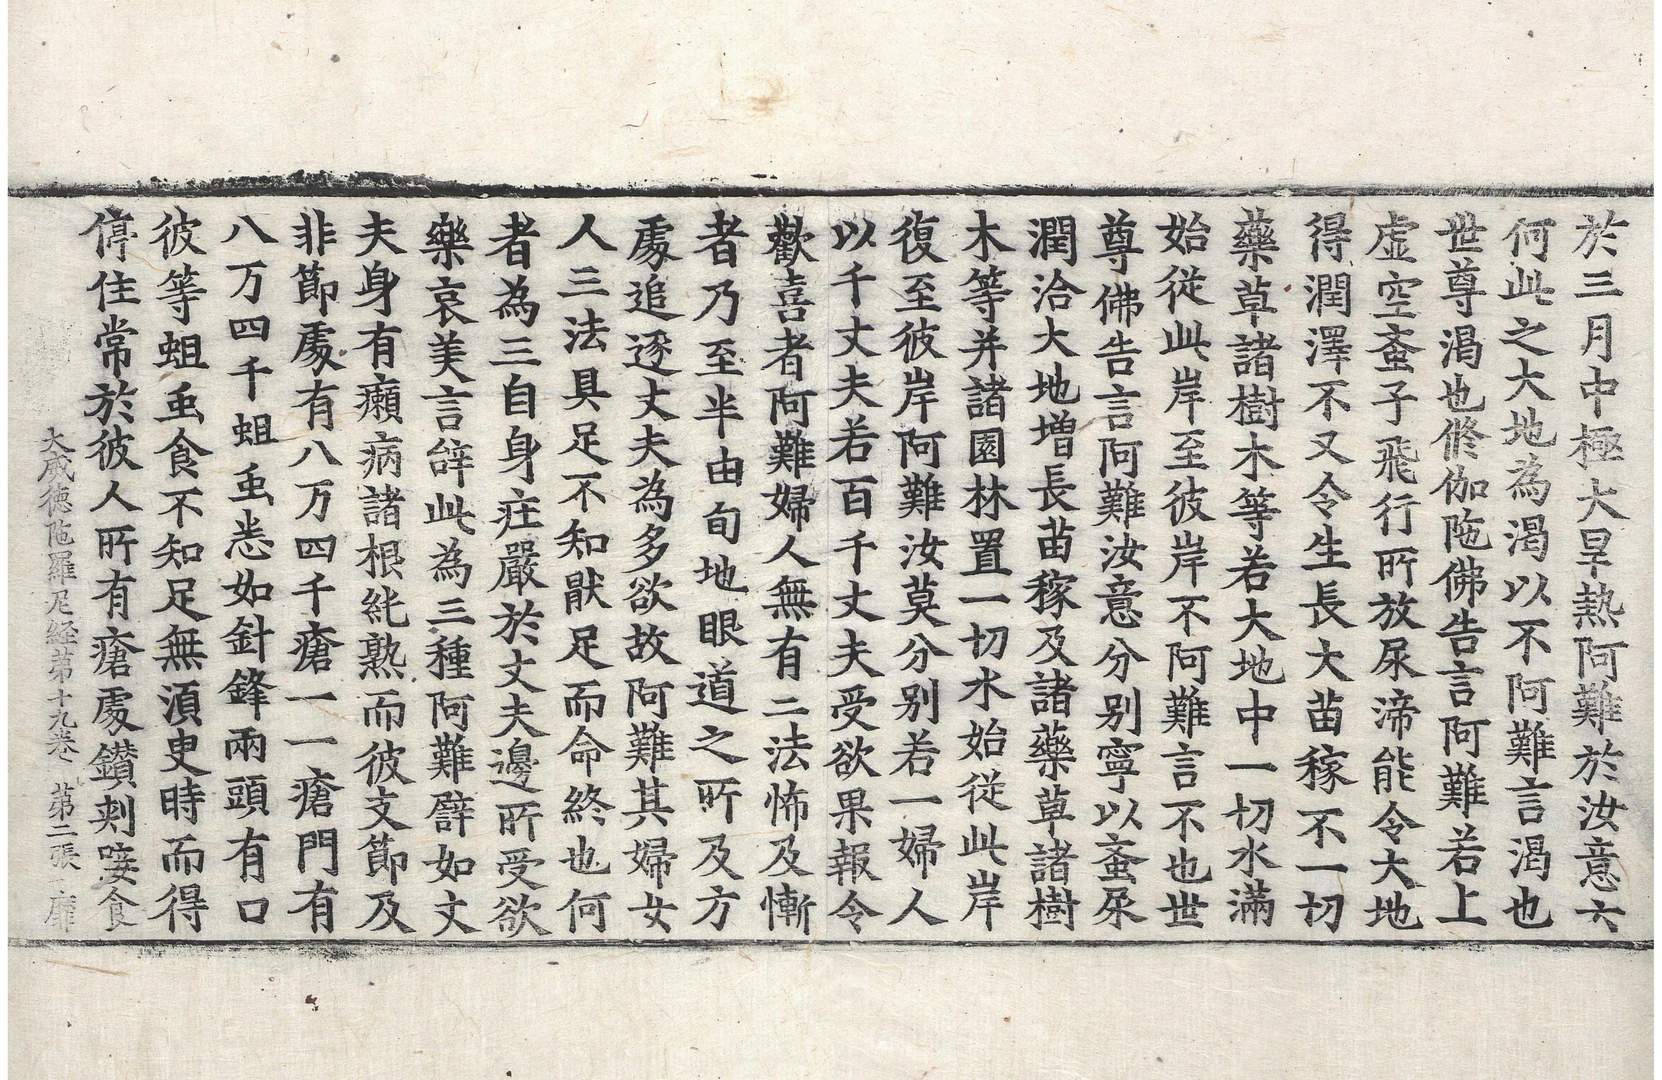 於三月中極大旱熱阿難於汝意云
何此之大地為渴以不阿難言渴也
世尊渴也脩伽陁佛告言阿難若上
虛空蚉子飛行所放尿渧能令大地
得潤澤不又令生長大苗稼不一切
藥草諸樹木等若大地中一切水滿
始從此岸至彼岸不阿難言不也世
尊佛告言阿難汝意分別寧以蚉尿
潤洽大地增長苗稼及諸藥草諸樹
木等并諸園林置一切水始從此岸
復至彼岸阿難汝莫分別若一婦人
以千丈夫若百千丈夫受欲果報令
歡喜者阿難婦人無有二法怖及慚
者乃至半由旬地眼道之所及方
處追逐丈夫為多欲故阿難其婦女
人三法具足不知猒足而命終也何
者為三自身莊嚴於丈夫邊所受欲
樂哀美言辝此為三種阿難譬如丈
夫身有癩病諸根純熟而彼支節及
非節處有八万四千瘡一一瘡門有
八万四千蛆虫悉如針鋒兩頭有口
彼等蛆虫食不知足無湏臾時而得
停住常於彼人所有瘡處鑽刺唼食
大威德陁羅尼經第十九卷 第二張 靡